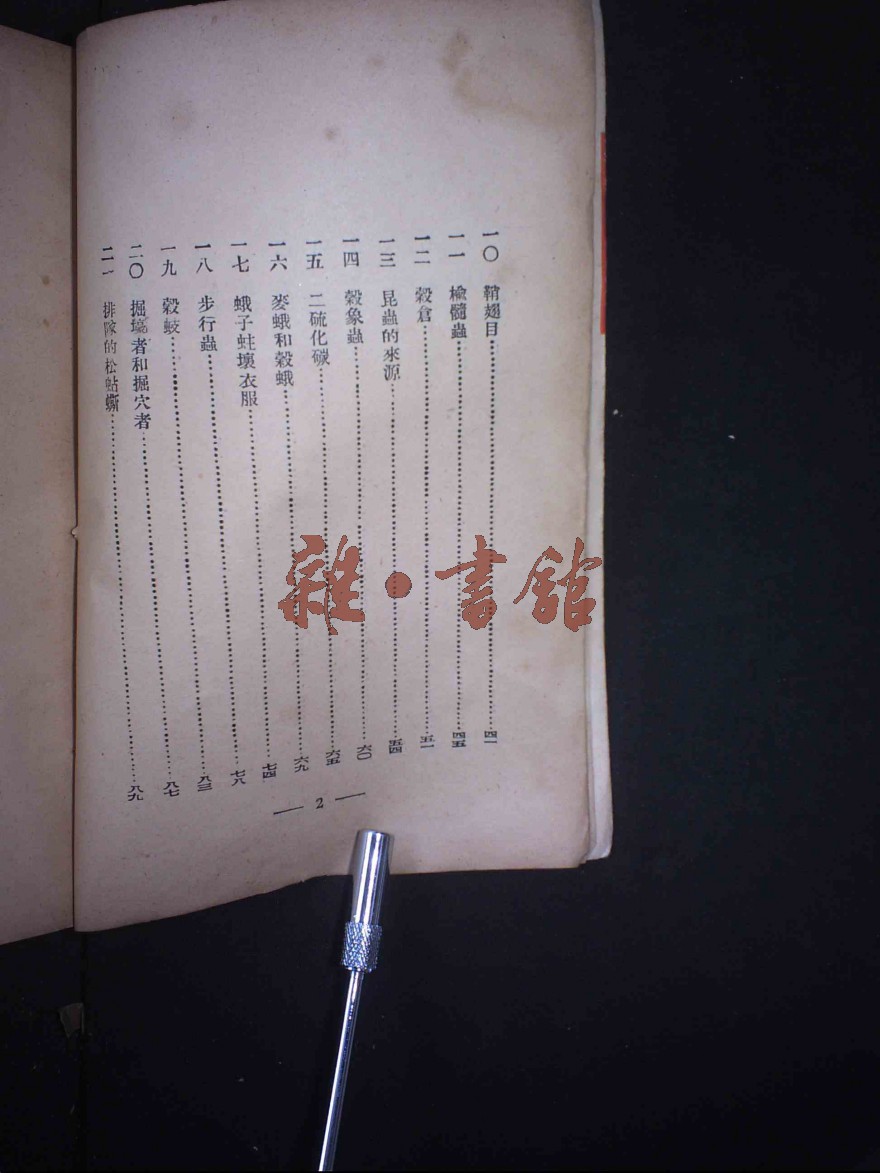 一〇 鞘翅目……四一
一一 髓蟲……四五
一二 穀倉……五一
一三 昆蟲的來源……五四
一四 穀象蟲……六〇
一五 二硫化碳……六五
一六 麥蛾和穀蛾……六九
一七 蛾子蛀壞衣服……七四
一八 步行蟲……七八
一九 穀……八三
二〇 掘墳者和掘穴者……八七
二一 排隊的松蛄蟖……八九
— 2 —
雜·書館